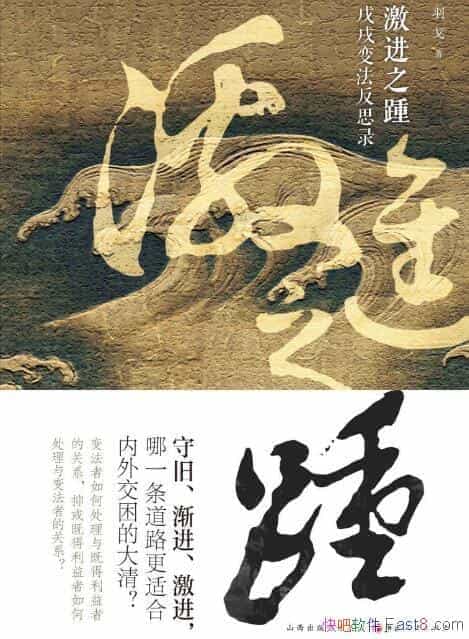 羽戈 著
激进之踵
戊戌变法反思录
激进之踵
守旧、渐进、激进，
哪一条道路更适合
内外交困的大清？
变法者如何处理与既得利益者
的关系，抑或既得利益者如何
处理与变法者的关系？
山西出版
快吧软件 Fast8.com